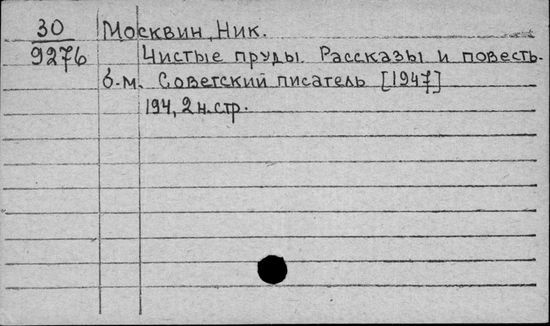 30 Москвин, Ник.
9276 Чистые пруды. Рассказы и повесть.
б.м. Советский писатель [1947]
194, 2 н.стр.